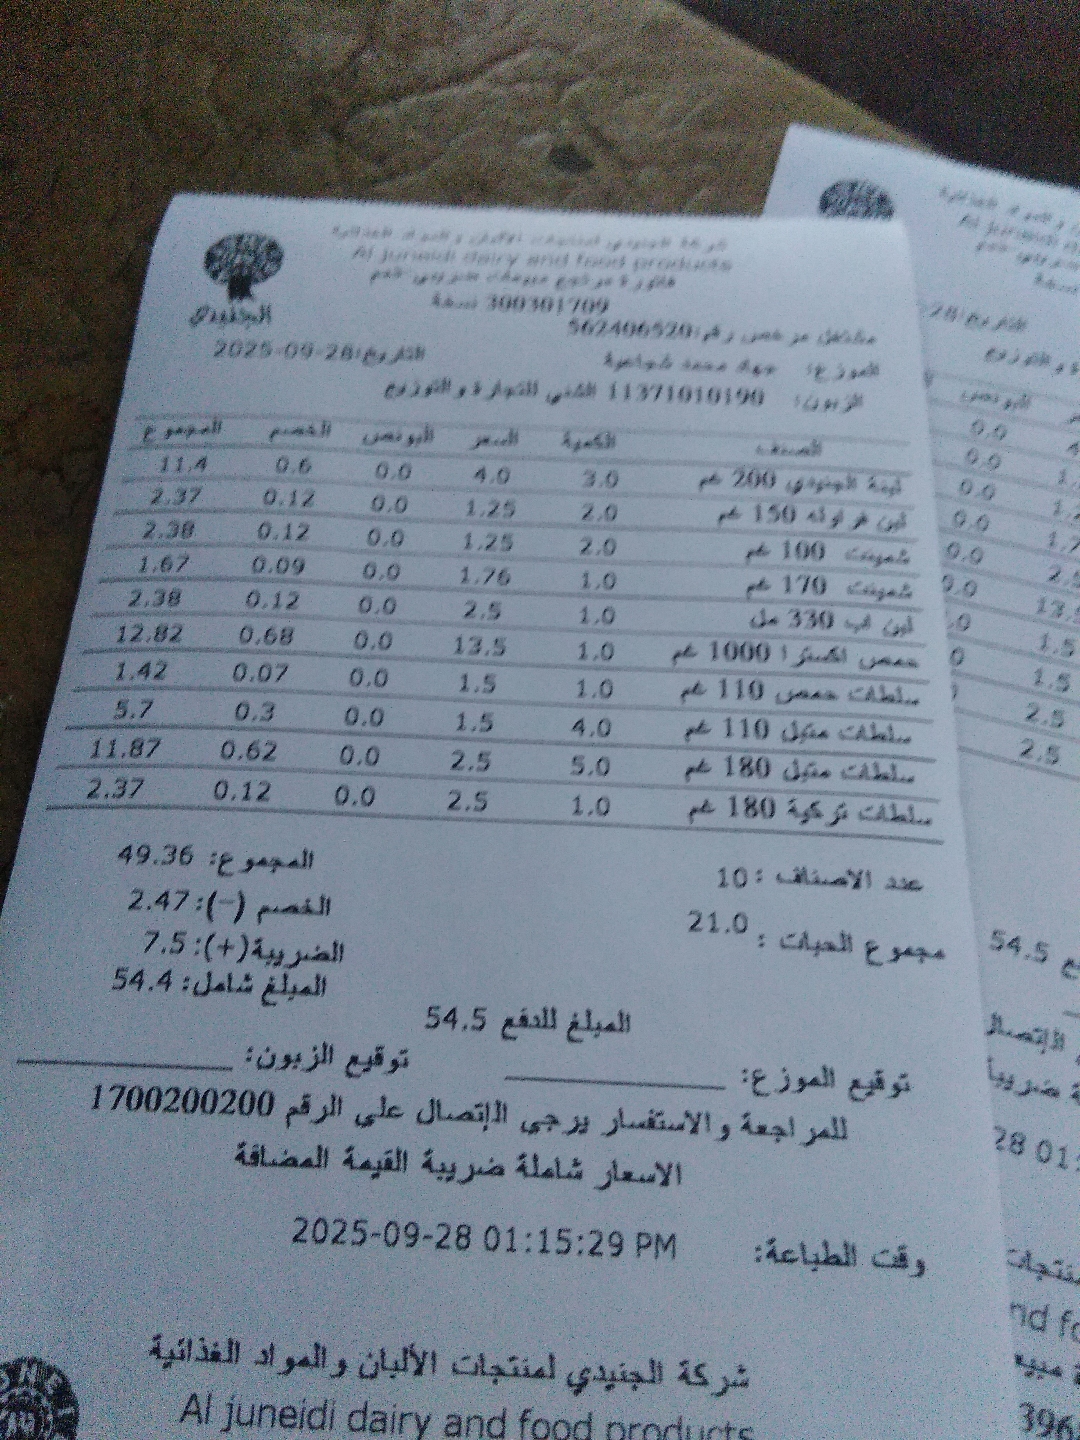 شركة الجنيدي لمنتجات الألبان والمواد الغذائية
Al juneidi dairy and food products
الجنيدي
فاتورة مرجوع مبيعات ضريبي خصم
300301709 نسخة
مشتغل مرخص رقم: 562406520
الموزع: محمد
التاريخ: 2025-09-28
الزبون: 11371010190 للتجارة والتوزيع
الصنف الكمية السعر البونص الخصم المجموع
لبنة الجنيدي 200 غم 3.0 4.0 0.0 0.6 11.4
لبن فراولة 150 غم 2.0 1.25 0.0 0.12 2.37
شمينت 100 غم 2.0 1.25 0.0 0.12 2.38
شمينت 170 غم 1.0 1.76 0.0 0.09 1.67
لبن اب 330 مل 1.0 2.5 0.0 0.12 2.38
حمص اكسترا 1000 غم 1.0 13.5 0.0 0.68 12.82
سلطات حمص 110 غم 1.0 1.5 0.0 0.07 1.42
سلطات متبل 110 غم 4.0 1.5 0.0 0.3 5.7
سلطات متبل 180 غم 5.0 2.5 0.0 0.62 11.87
سلطات تركية 180 غم 1.0 2.5 0.0 0.12 2.37
عدد الاصناف : 10
المجموع: 49.36
الخصم (-): 2.47
مجموع الحبات : 21.0
الضريبة(+): 7.5
المبلغ شامل: 54.4
المبلغ للدفع 54.5
توقيع الموزع: توقيع الزبون:
للمراجعة والاستفسار يرجى الإتصال على الرقم 1700200200
الاسعار شاملة ضريبة القيمة المضافة
وقت الطباعة: 2025-09-28 01:15:29 PM
شركة الجنيدي لمنتجات الألبان والمواد الغذائية
Al juneidi dairy and food products
التاريخ: 28
البونص
0.0
0.0
0.0
0.0
0.0
1.5
1.5
2.5
2.5
54.5
الإتصال
28 01: